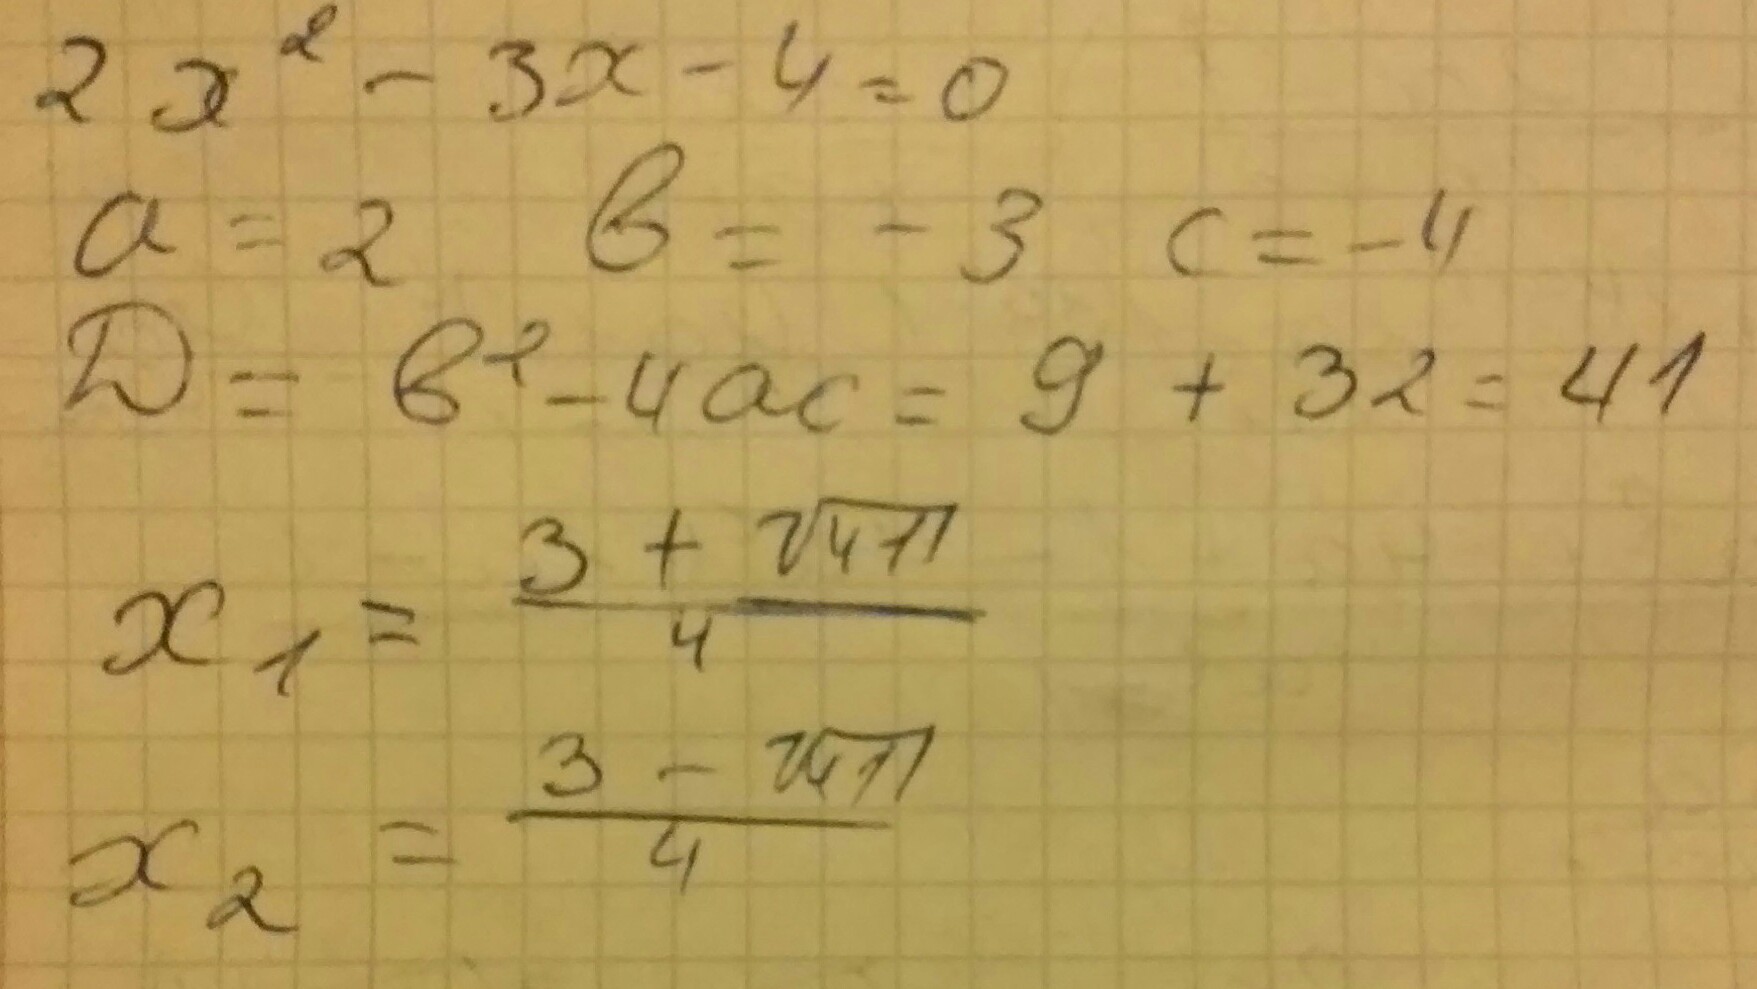 2x² - 3x - 4 = 0
a = 2 в = -3 c = -4
D = в² - 4ac = 9 + 32 = 41
x₁ = (3 + √41)/4
x₂ = (3 - √41)/4